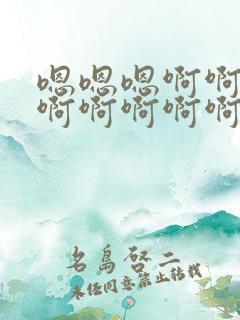 嗯嗯嗯啊啊
啊啊啊啊啊
名岛啓二
未经同意禁止转载